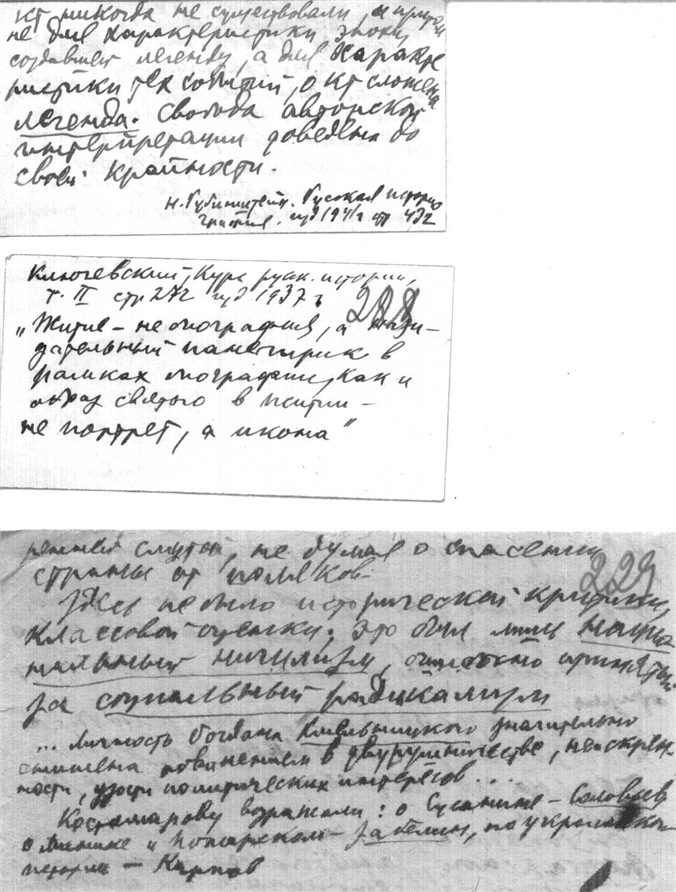 кт никогда не существовали и притом
не для характеристики эпохи
создавшей легенду, а для характе
ристики тех событий, о кт сложена
легенда. Свобода авторской
интерпретации доведена до
своей крайности.
Н. Рубинштейн. Русская историо
графия. изд 1941 г стр 432
Ключевский, Курс русск. истории,
т. II стр 272 изд 1937 г
228
„Житие – не биография, а нази-
дательный панегирик в
рамках биографии, как и
образ святого в житии –
не портрет, а икона"
смутой, не думая о спасении
страны от поляков.
229
Здесь не было исторической критики,
классовой оценки; это был лишь нацио
нальный нигилизм, ошибочно принятый
за социальный радикализм
... личность Богдана Хмельницкого значительно
снижена обвинением в двурушничестве, неискрен-
ности, узости политических интересов...
Костомарову возражали: о Сусанине – Соловьев
о Минине и Пожарском – Забелин, по украинской
истории – Карпов